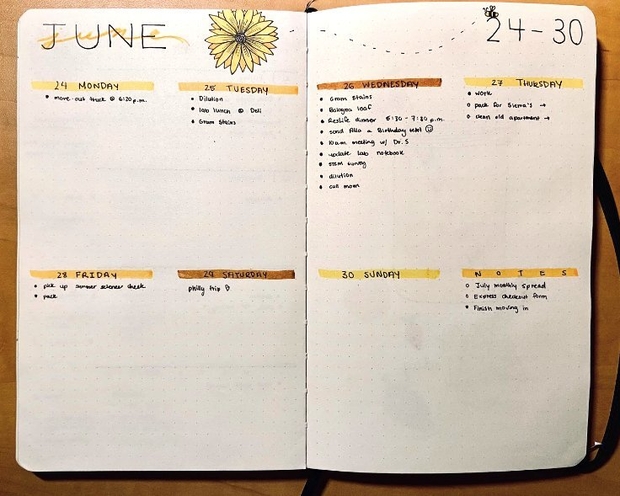 JUNE
24-30
24 MONDAY
move-out truck @ 6:20 p.m.
25 TUESDAY
Dilution
lab lunch @ Deli
Gram Stains
26 WEDNESDAY
Gram Stains
Balogna loaf
Reslife dinner 6:30 - 7:30 p.m.
send Alla a Birthday text
10am meeting w/ Dr. S
update lab notebook
STEM survey
dilution
call mom
27 THURSDAY
work
pack for Sierra's →
clean old apartment →
28 FRIDAY
pick up summer science check
pack
29 SATURDAY
philly trip
30 SUNDAY
NOTES
July monthly spread
Express checkout form
Finish moving in